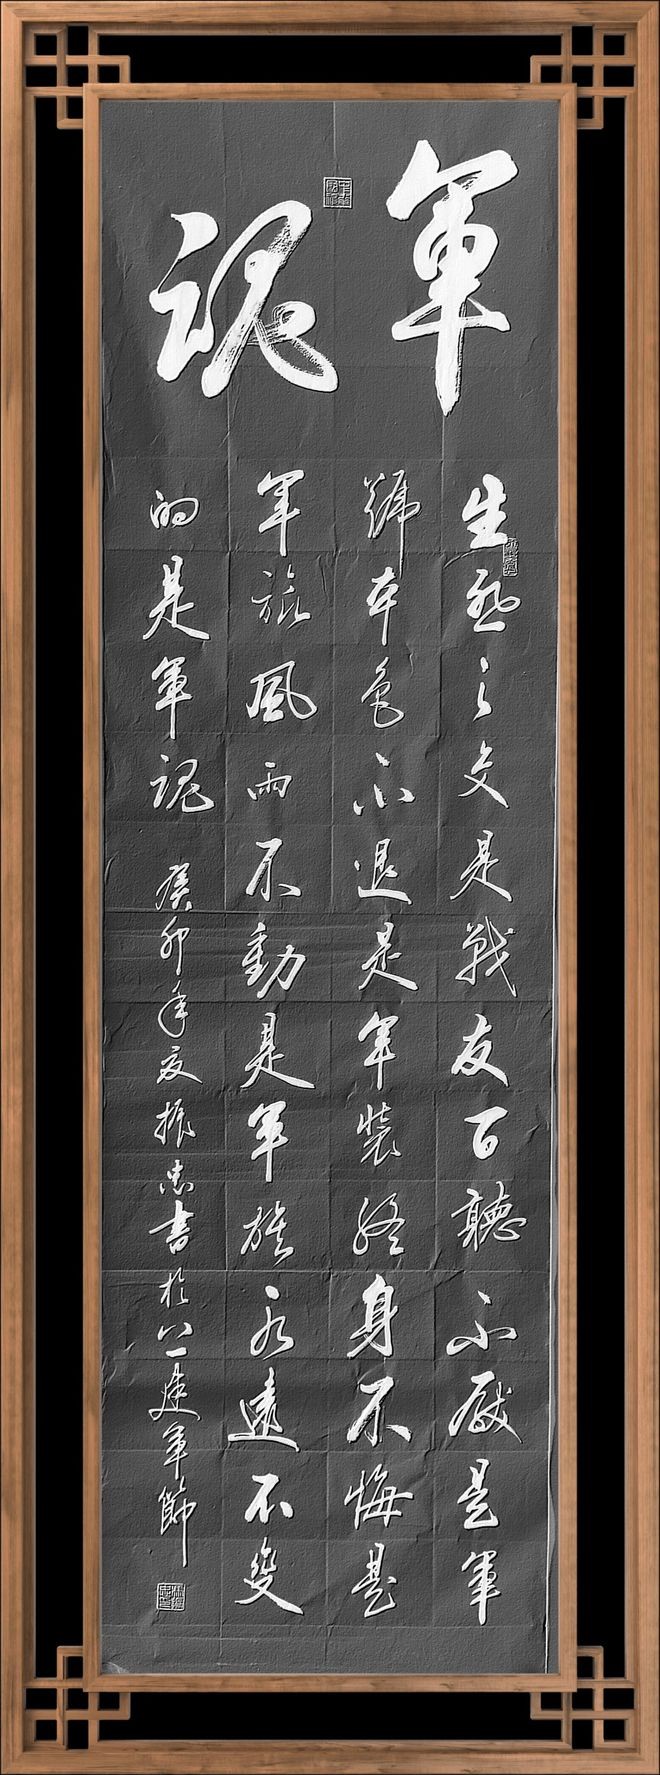 軍魂
生死之交是戰友百聽不厭是軍
號本色不退是軍裝終身不悔是
軍旅風雨不動是軍旗永遠不變
的是軍魂 癸卯年夏振忠書於八一建軍節